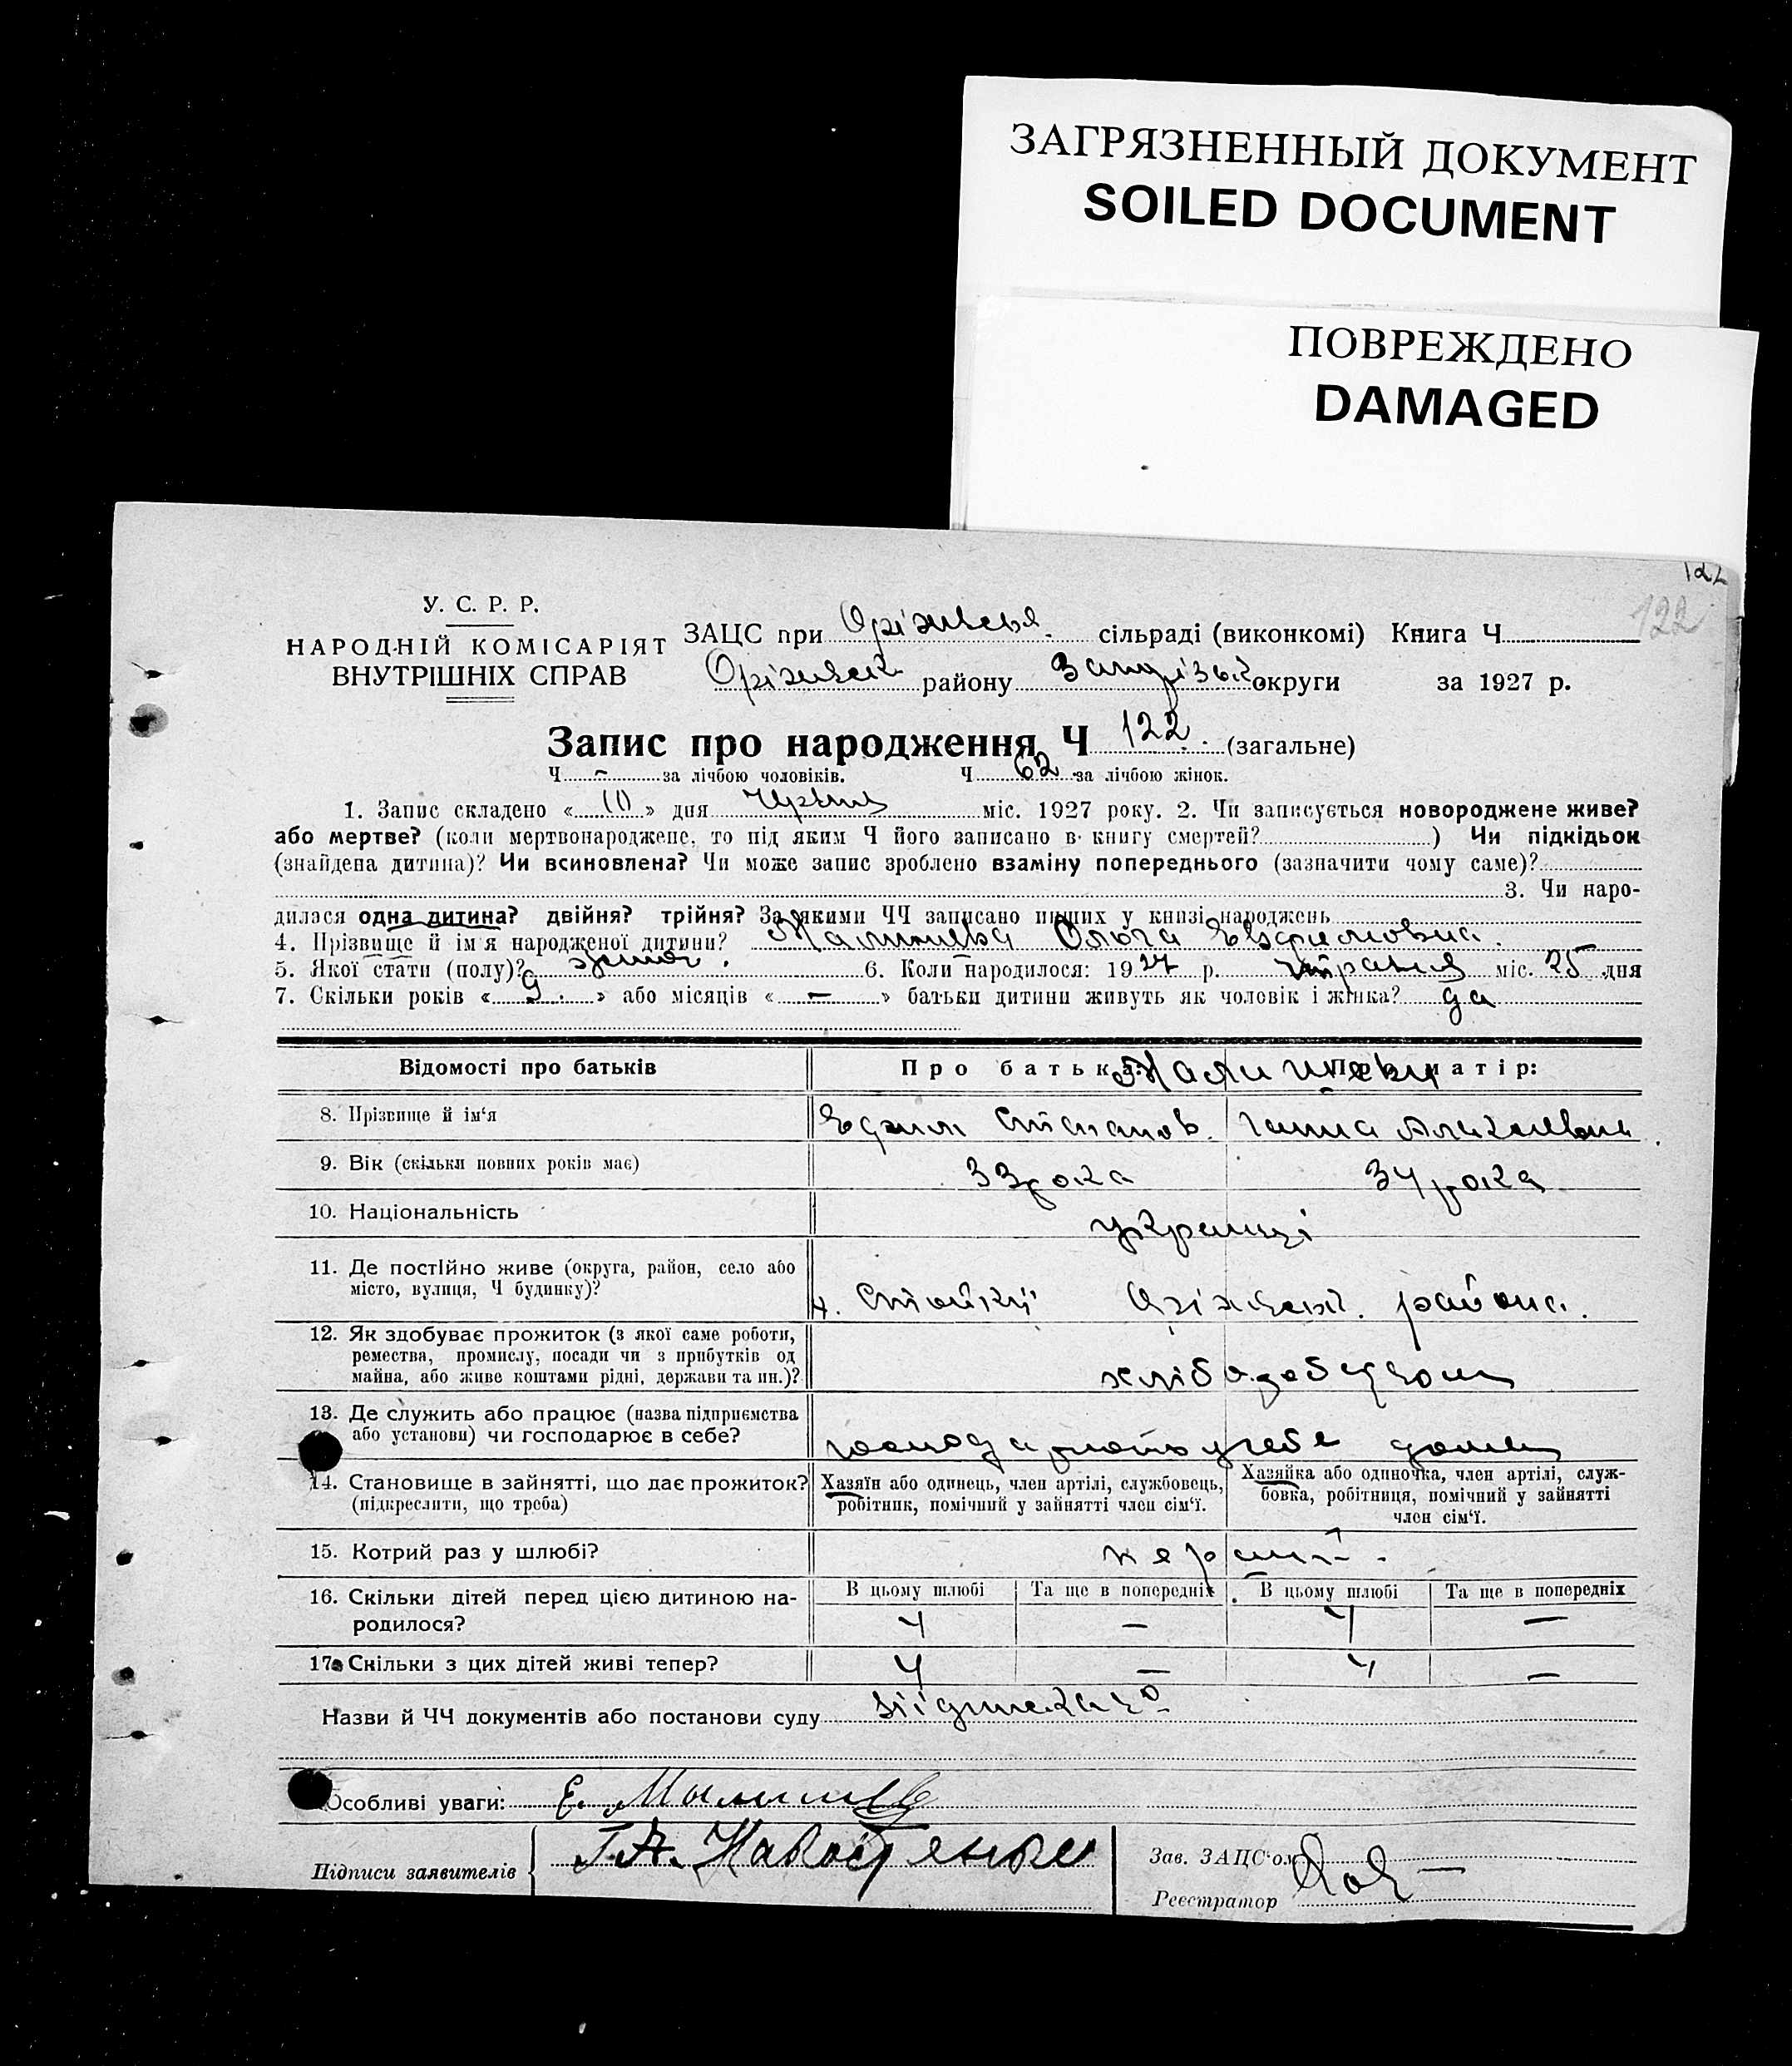 ЗАГРЯЗНЕННЫЙ ДОКУМЕНТ
SOILED DOCUMENT
ПОВРЕЖДЕНО
DAMAGED
122
122
У. С. Р. Р.
НАРОДНІЙ КОМІСАРІЯТ
ВНУТРІШНІХ СПРАВ
ЗАЦС при сільраді (виконкомі) Книга Ч
району округи за 1927 р.
Запис про народження Ч 122 (загальне)
Ч - за лічбою чоловіків. Ч 62 за лічбою жінок.
1. Запис складено « » дня міс. 1927 року. 2. Чи записується новороджене живе?
або мертве? (коли мертвонароджене, то під яким Ч його записано в книгу смертей? ) Чи підкідьок
(знайдена дитина)? Чи всиновлена? Чи може запис зроблено взаміну попереднього (зазначити чому саме)?
3. Чи наро-
дилася одна дитина? двійня? трійня? За якими ЧЧ записано инших у книзі народжень
4. Прізвище й ім'я народженої дитини? Ольга
5. Якої стати (полу)? 6. Коли народилося: 1927 р. травня міс. 25 дня
7. Скільки років « 9 » або місяців « — » батьки дитини живуть як чоловік і жінка? да
Відомості про батьків Про батька: Про матір:
8. Прізвище й ім'я Степанов. Ганна
9. Вік (скільки повних років має) 33 рока 34 рока
10. Національність українці
11. Де постійно живе (округа, район, село або
місто, вулиця, Ч будинку)? района.
12. Як здобуває прожиток (з якої саме роботи,
ремества, промислу, посади чи з прибутків од
майна, або живе коштами рідні, держави та ин.)?
13. Де служить або працює (назва підприємства
або установи) чи господарює в себе? господарюють у себе дома
14. Становище в зайнятті, що дає прожиток?
(підкреслити, що треба)
Хазяїн або одинець, член артілі, службовець,
робітник, помічний у зайнятті член сім'ї.
Хазяйка або одиночка, член артілі, служ-
бовка, робітниця, помічний у зайнятті
член сім'ї.
15. Котрий раз у шлюбі?
16. Скільки дітей перед цією дитиною на-
родилося?
В цьому шлюбі Та ще в попередніх В цьому шлюбі Та ще в попередніх
4 — 4 —
17. Скільки з цих дітей живі тепер? 4 — 4 —
Назви й ЧЧ документів або постанови суду
Особливі уваги: Е.
Підписи заявителів
Зав. ЗАЦС'ом
Реєстратор